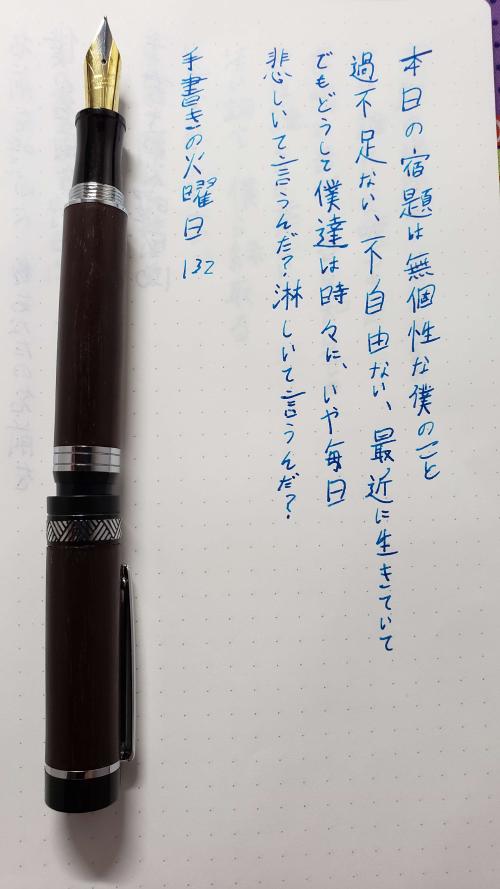 本日の宿題は無個性な僕のこと
過不足ない、不自由ない、最近に生きていて
でもどうして僕達は時々に、いや毎日
悲しいて言うんだ?淋しいて言うんだ?
手書きの火曜日 132